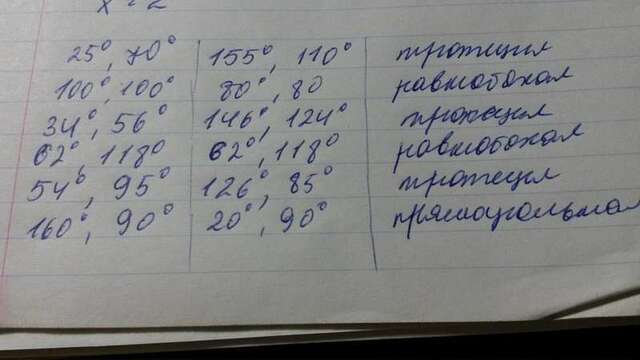 x = 2
25°, 70° 155°, 110° трапеция
100°, 100° 80°, 80 равнобокая
34°, 56° 146°, 124° трапеция
62°, 118° 62°, 118° равнобокая
54°, 95° 126°, 85° трапеция
160°, 90° 20°, 90° прямоугольная